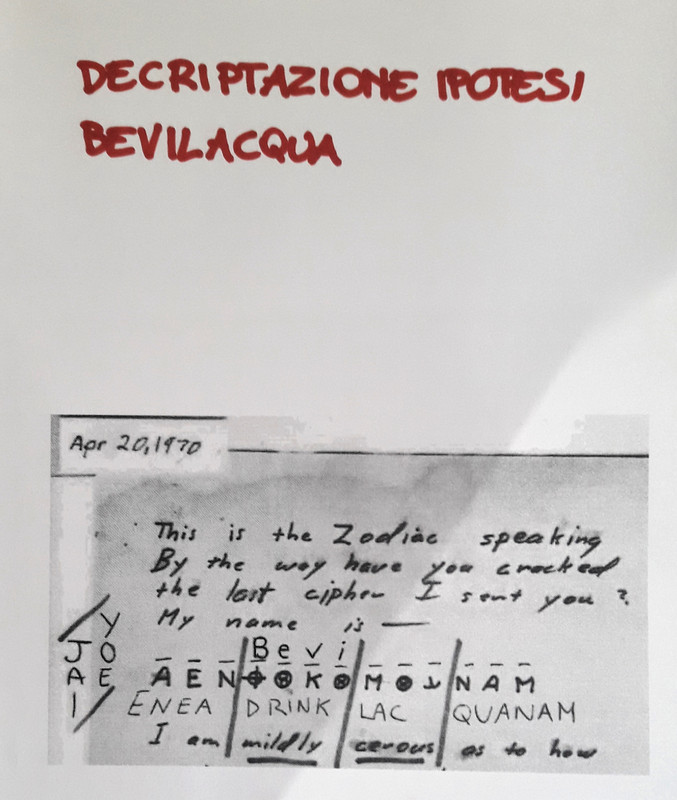 DECRIPTAZIONE IPOTESI
BEVILACQUA
Apr 20, 1970
This is the Zodiac speaking
By the way have you cracked
the last cipher I sent you ?
My name is —
Y O E
J A I
B e v i
A E N ⌖ ⊗ K ⊗ M ⊗ ⅄ N A M
ENEA DRINK LAC QUANAM
I am mildly cerous as to how